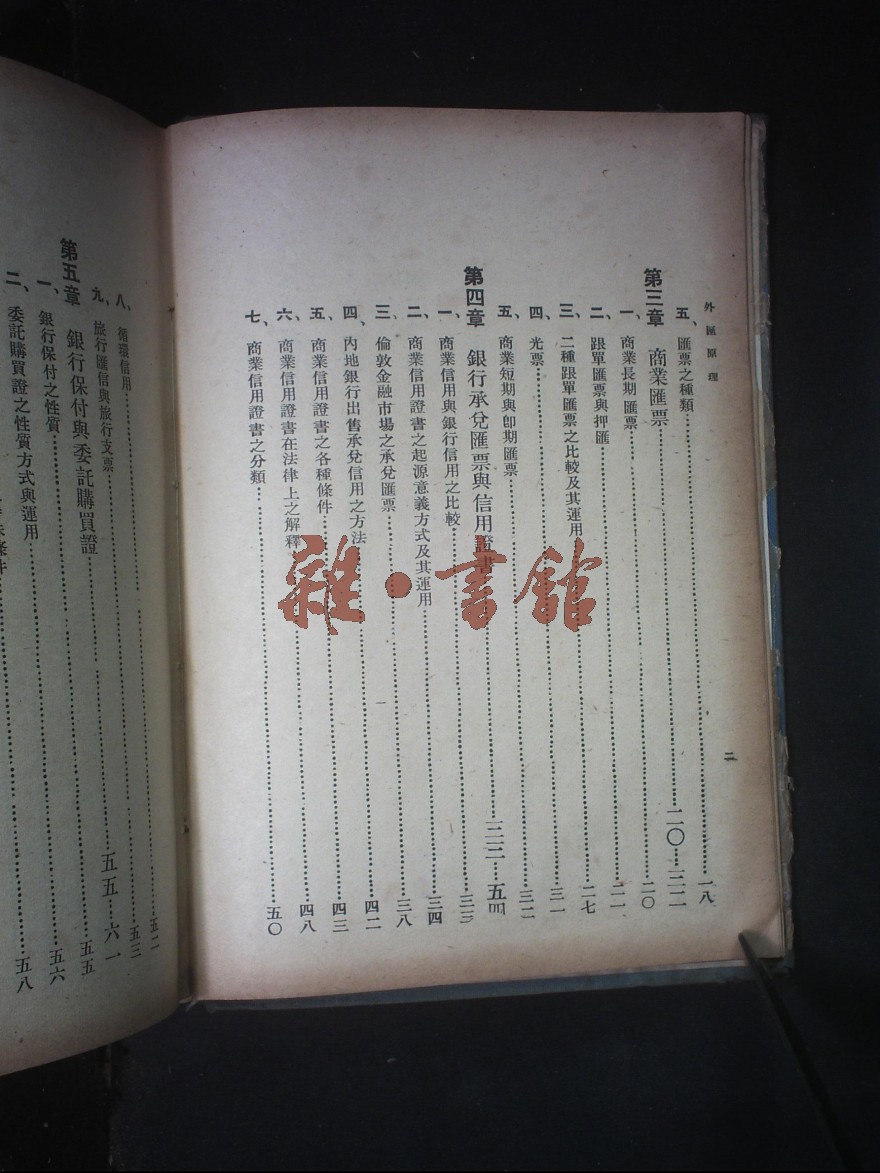 外匯原理 二
五、匯票之種類……一八
第三章 商業匯票……二〇……三二
一、商業長期匯票……二〇
二、跟單匯票與押匯……二一
三、二種跟單匯票之比較及其運用……二七
四、光票……三一
五、商業短期與卽期匯票……三二
第四章 銀行承兌匯票與信用證書……三三……五四
一、商業信用與銀行信用之比較……三三
二、商業信用證書之起源意義方式及其運用……三四
三、倫敦金融市場之承兌匯票……三八
四、內地銀行出售承兌信用之方法……四二
五、商業信用證書之各種條件……四三
六、商業信用證書在法律上之解釋……四八
七、商業信用證書之分類……五〇
八、循環信用……五二
九、旅行匯信與旅行支票……五三
第五章 銀行保付與委託購買證……五五……六一
一、銀行保付之性質……五五
二、委託購買證之性質方式與運用……五六
條件……五八
雜·書館